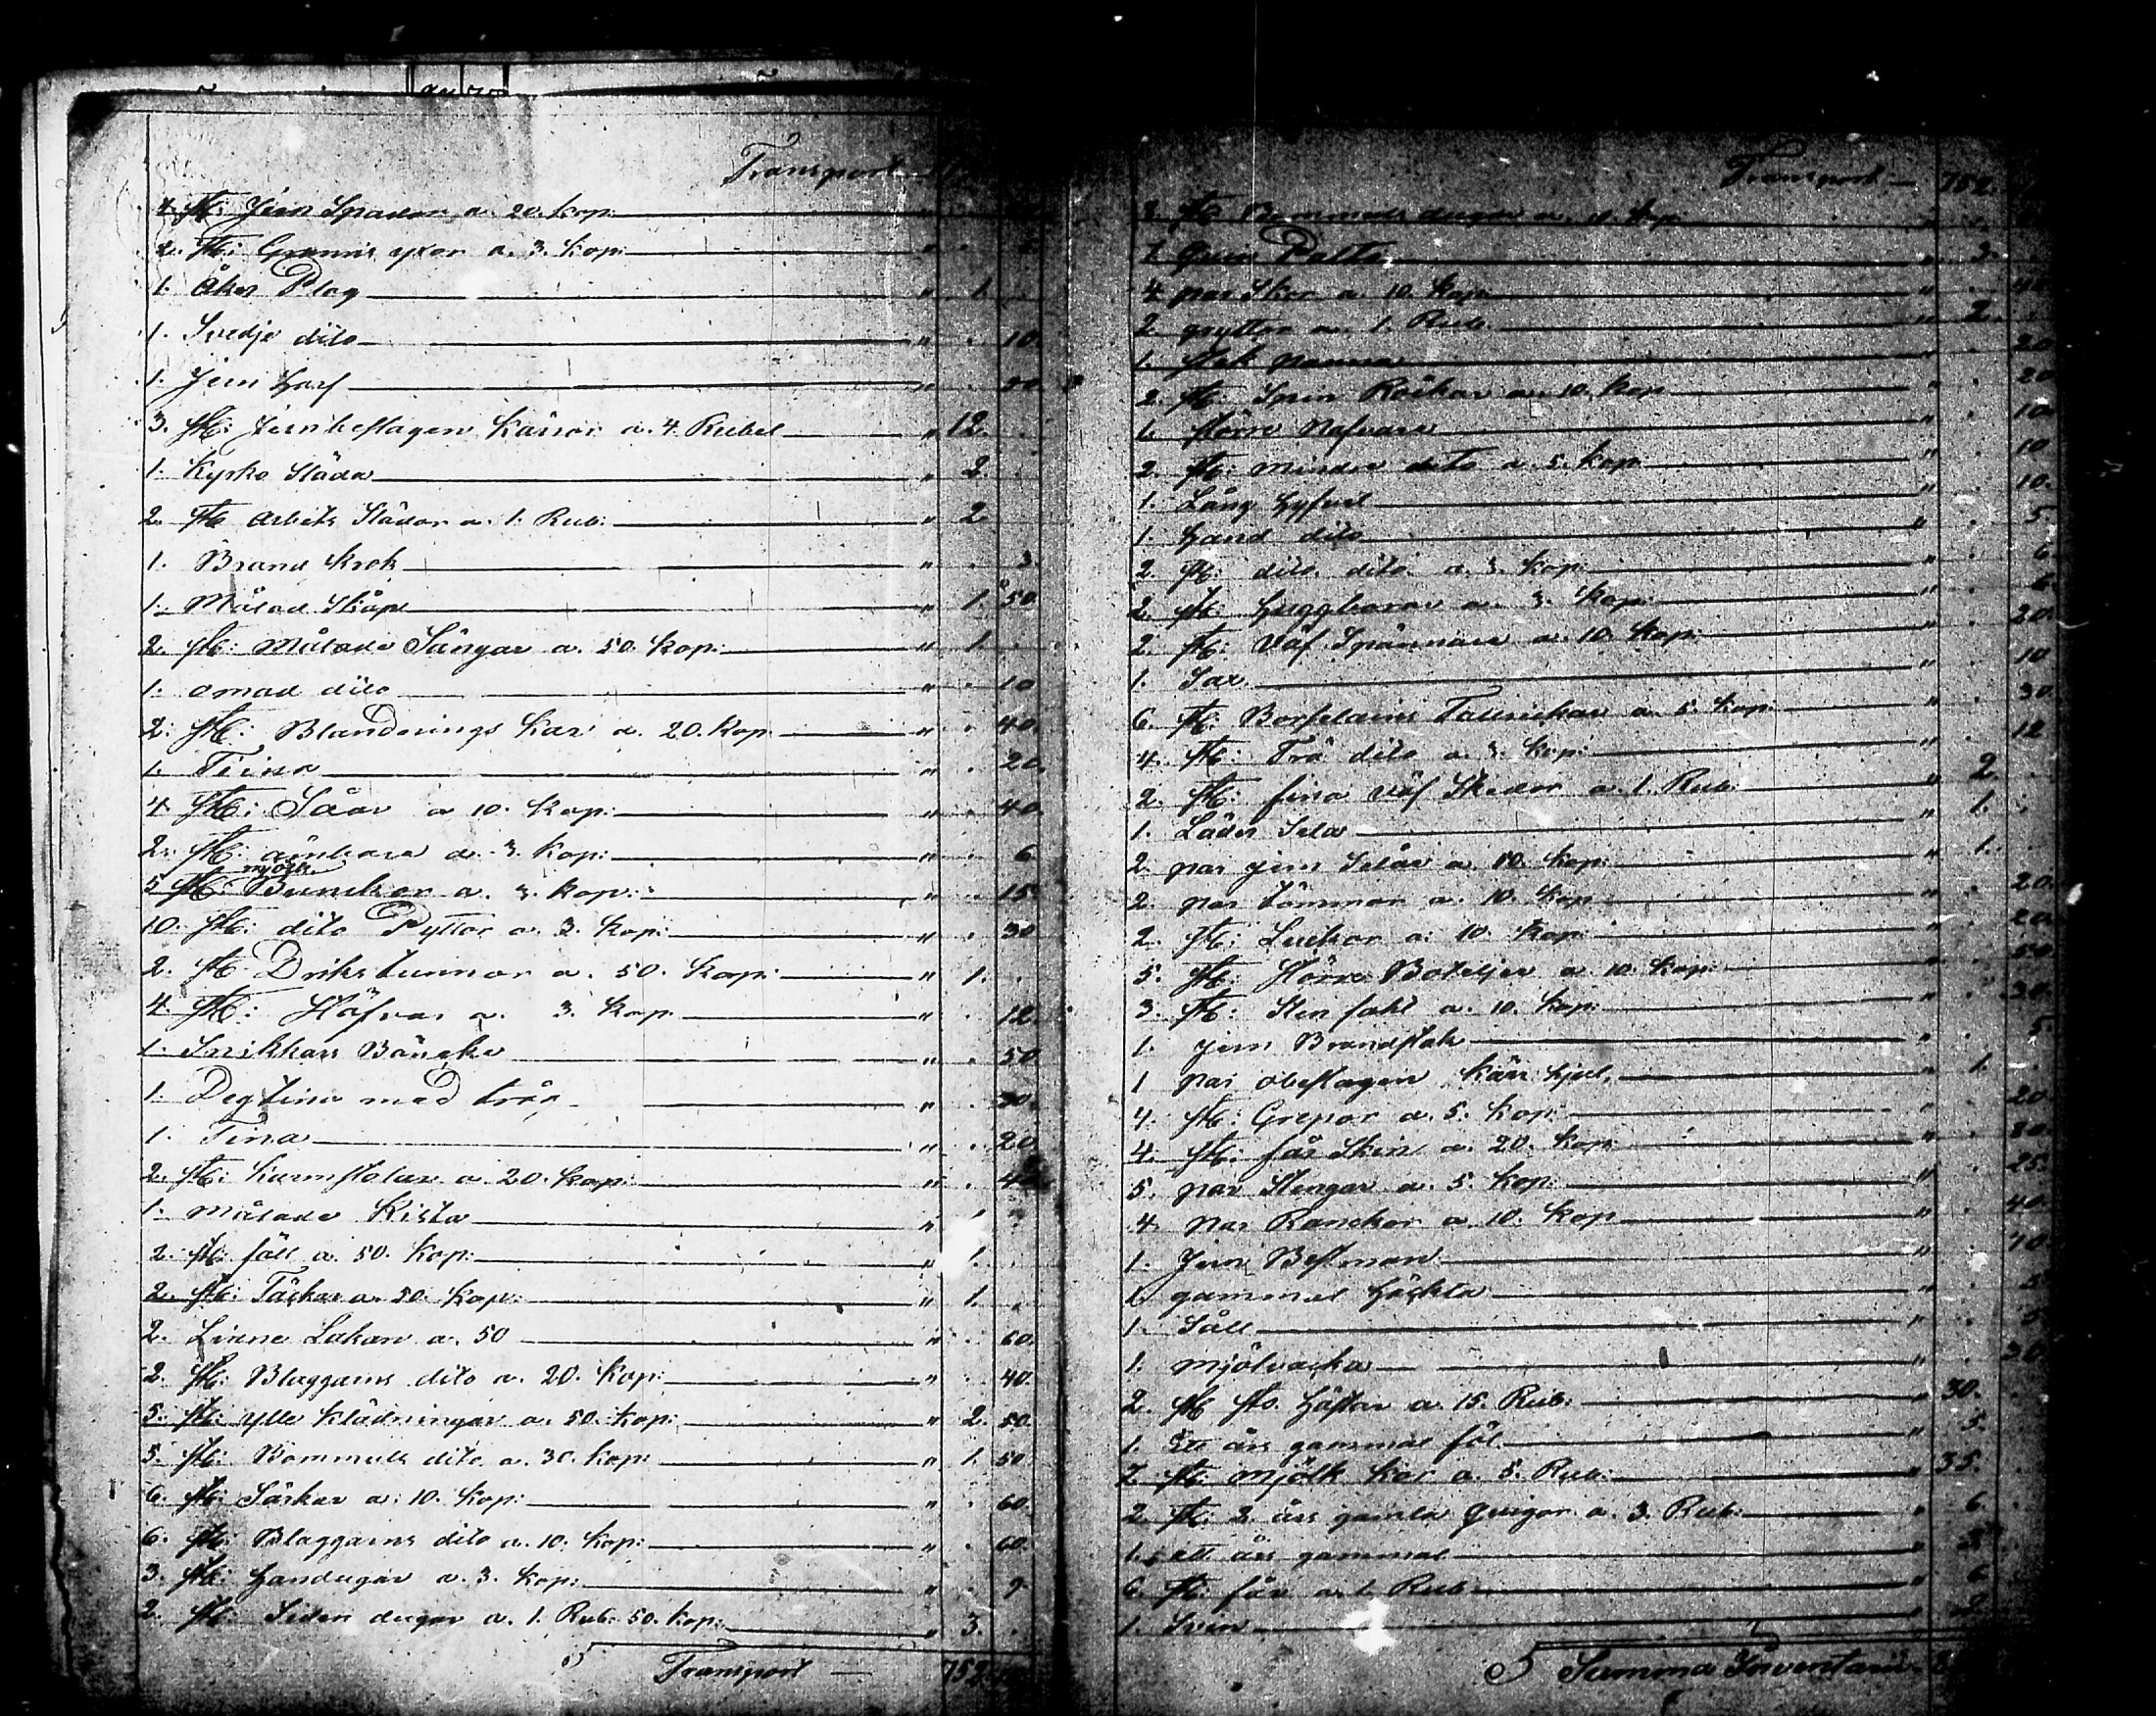 Transport
4. st: Jern Spadar a. 20. kop: "
2. st: yxor a. 3. kop: " .
1. Åker Plog " 1. .
1. Svedje dito " . 10.
1. Jern Harf " . 50.
3. st: Jernbeslagen Kärror a. 4. Rubel " 12. .
1. Kyrko Släda " 2. .
2. st: Arbets Slädor a. 1. Rub: " 2
1. Brand krok " . 3.
1. Målad Skåp " 1. 50.
2. st: Målade Sängar a. 50. kop: " 1. .
1. omad dito " . 10
2. st: Blandnings kar a. 20. kop " . 40.
1. Tiina " . 20.
4. st: Såar a 10. kop: " . 40.
2. st: ämbare a. 3. kop: " . 6.
5 st: mjölk Bunckor a. 3. kop: " . 15
10. st: dito Pyttor a. 3. kop: " . 30
2. st: Drikstunnor a. 50. kop: " 1. .
4. st: Häfvar a. 3. kop. " . 12.
1. Snikkars Bäncke " . 50
1. Degtina med tråg " . 30.
1. Tina " . 20
2. st: Karmstolar a. 20. kop: " . 40
1. målade Kista " 1 .
2. st: fäll a. 50. kop: " 1. .
2. st: Täckar a. 50. kop: " 1. .
2. Linne Lakan a. 50 " . 60.
2. st: Blaggarns dito a. 20. kop: " . 40.
5. st: ylle Klädningar a. 50. kop: " 2. 50.
5. st: Bommulls dito a. 30. kop: " 1. 50
6. st: Särkar a. 10. kop: " . 60.
6. st: Blaggarns dito a. 10. kop: " . 60.
3. st: Handugar a. 3. kop: " . 9.
2. st: Siden dugar a. 1. Rub: 50. kop: " 3. .
Transport 752.
Transport 752.
st: Bommuls dugar a. kop:
1. " 3. .
4. par Skor a. 10. kop " . 40.
2. gryttor a. 1. Rub. " 2. .
1. stek panna " . 20
2. st: Spin Råckar a. 10. kop " . 20
1. större Nafvare " . 10.
2. st: mindre dito a. 5. kop " . 10
1. Lång Hyfvel " . 10.
1. Hand dito " . 5
2. st: dito dito a. 3. kop: " . 6
2. st: Huggborar a. 3. kop: " . 6.
2. st: Väf Spännare a. 10. kop: " . 20.
1. Sax " . 10
6. st: Borselains Tallrickar a. 5. kop: " . 30.
4. st: Trä dito a. 3. kop: " . 12
2. st: fina väf Skedor a. 1. Rub: " 2. .
1. Läder Sela " 1. .
2. par jern Selar a. kop: " 1. .
2. par tömmar a. 10. kop " . 20.
2. st: Luckor a: 10. kop: " . 20
5. st: Större Boteljer a 10. kop: " . 50
3. st: Sten fahl a. 10. kop: " . 30.
1. jern Brandstak " . 5.
1 par obeslagen Kärr hjul, " 1. .
4. st: Grepor a. 5. kop: " . 20
4. st: får Skin a. 20. kop: " . 80.
5. par Stengar a. 5. kop: " . 25.
4. par Ranckor a. 10. kop " . 40.
1. Jern Bessman " . 70.
1. gammal Häckla " . 5
1. Såll " . 5
1. mjölvacka " . 30.
2. st. sto. Hästar a. 15. Rub: " 30. .
1. Ett års gammal föl " 5. .
7. st: mjölk kor a. 5. Rub: " 35. .
2. st: 2. års gamla Quigor a. 3. Rub: " 6. .
1. ett års gammal " 3
6. st: får a. 1. Rub: " 6
1. Svin " 2.
Summa Inventarie